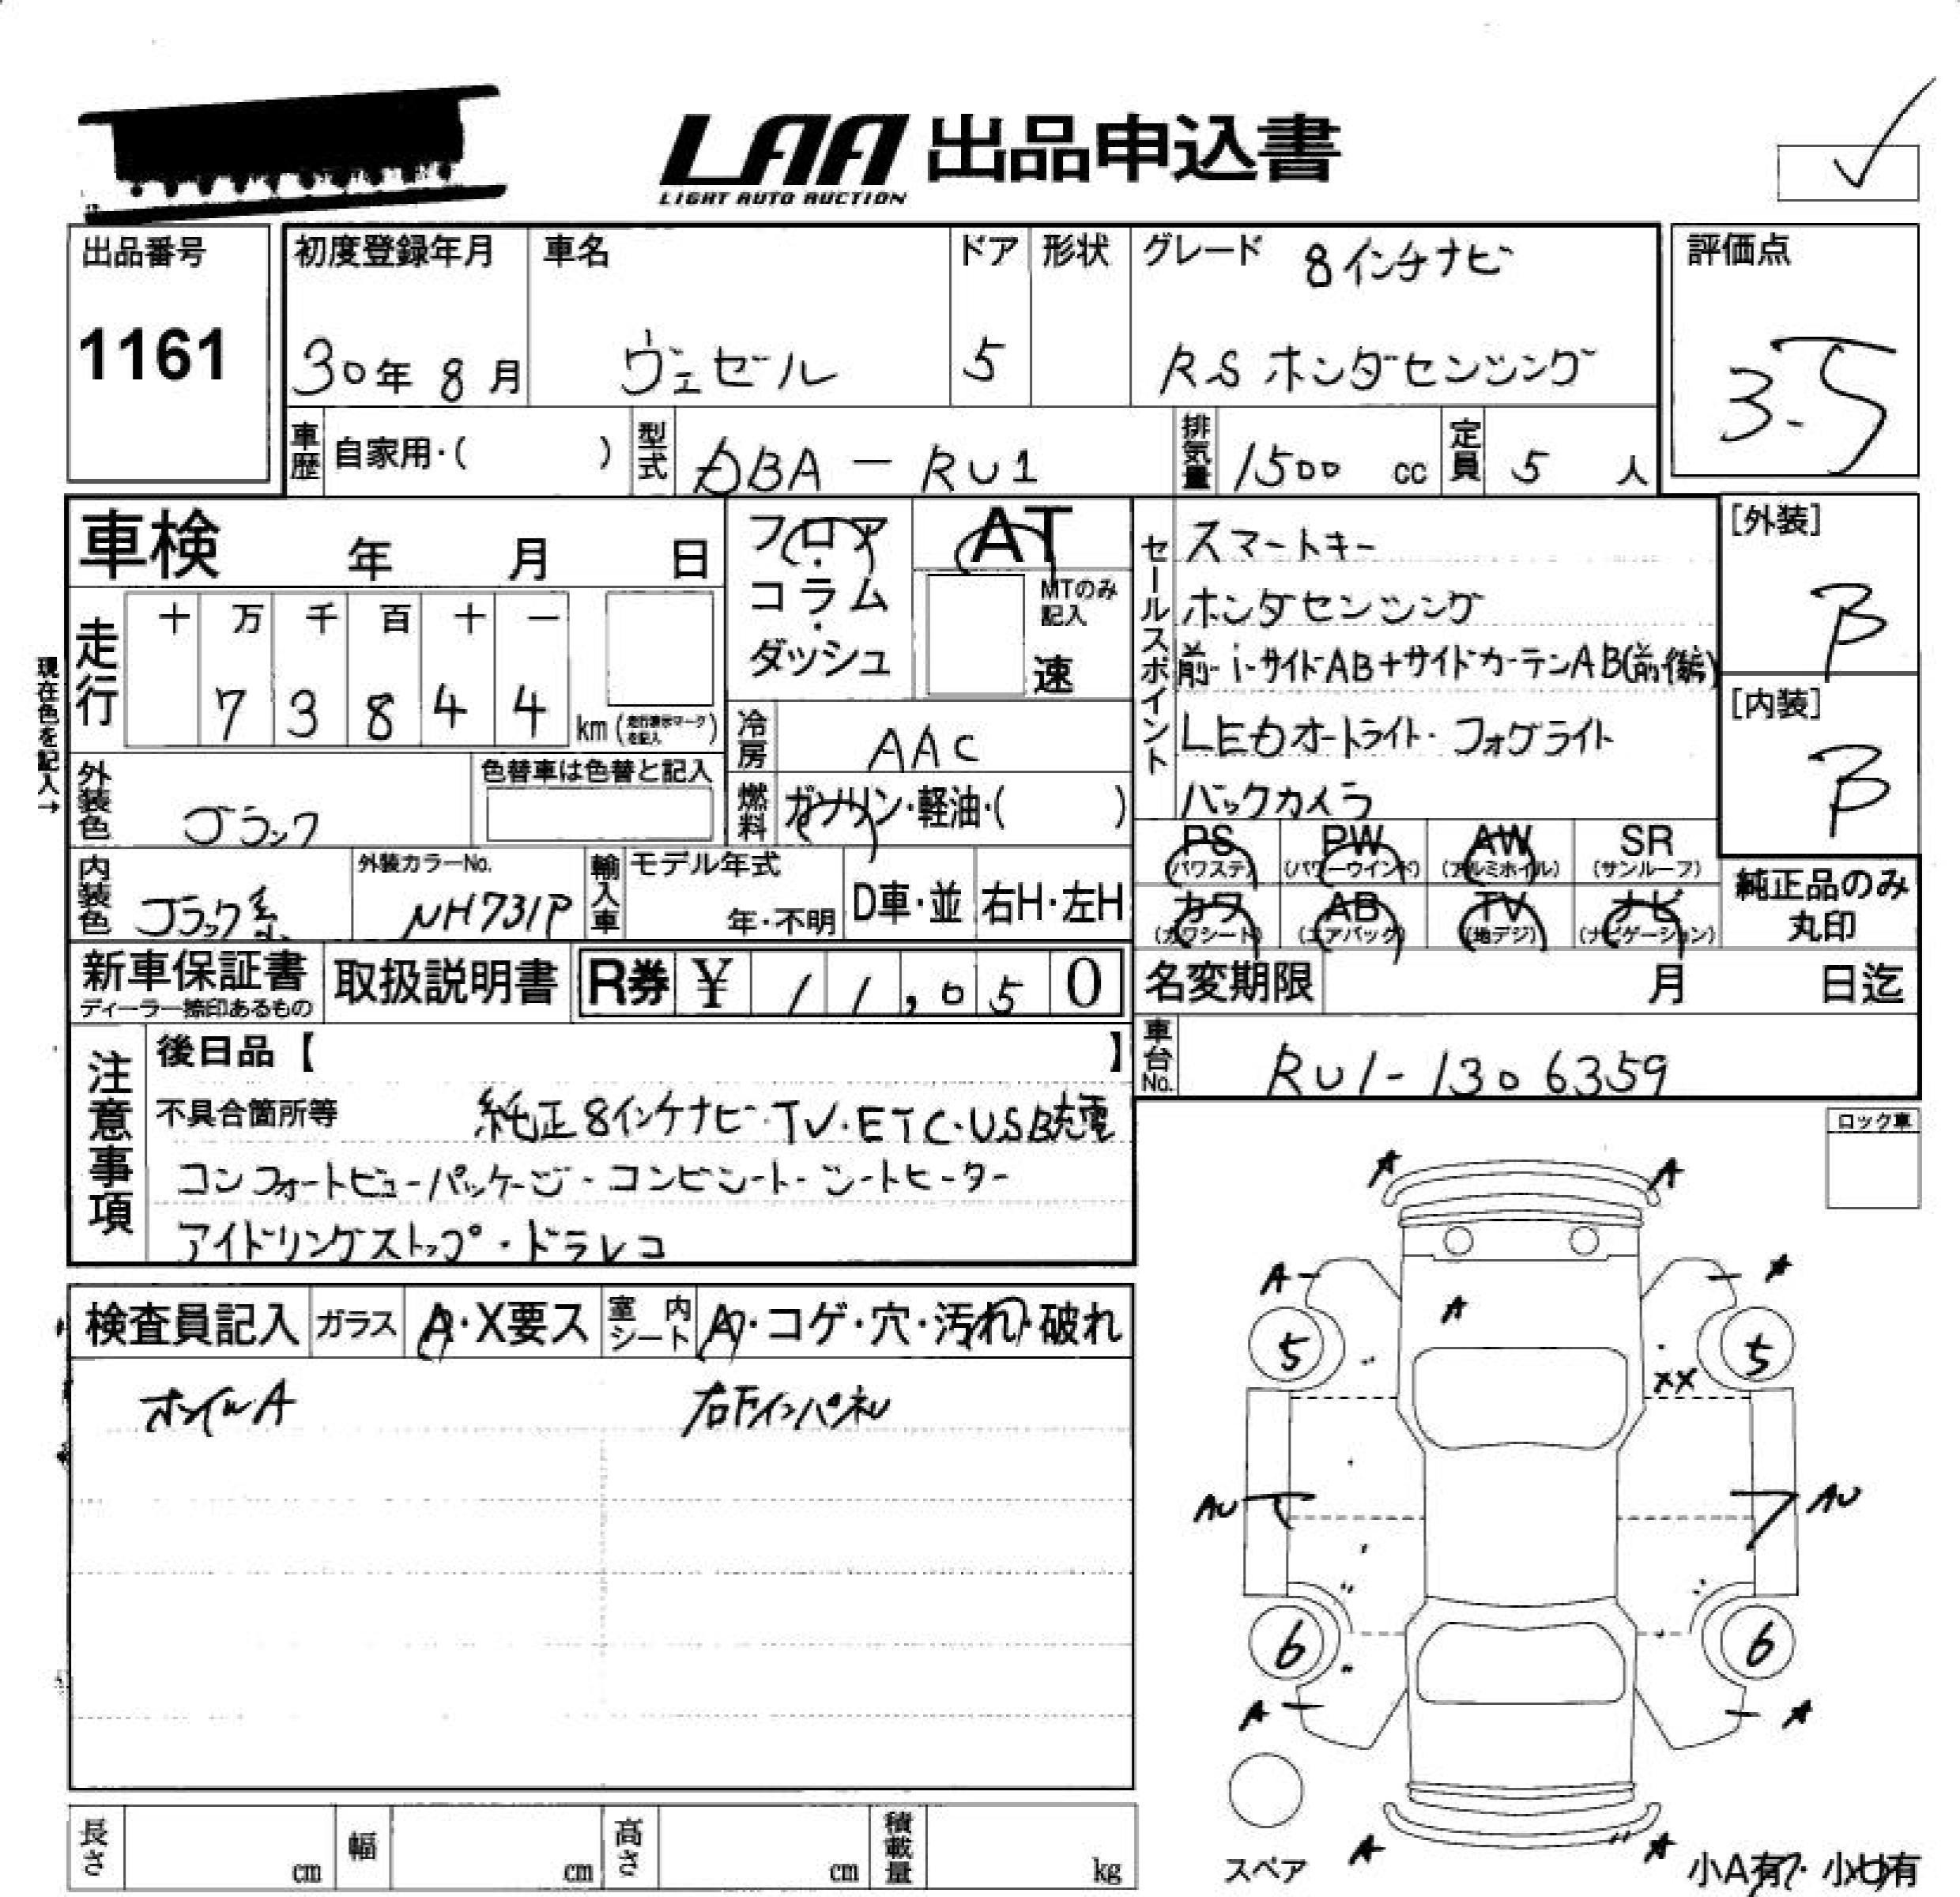 LAA 出品申込書
LIGHT AUTO AUCTION
出品番号
1161
初度登録年月
30年 8月
車名
ヴェゼル
ドア
5
形状
グレード 8インチナビ
RS ホンダセンシング
評価点
3.5
車歴 自家用・( )
型式 DBA-RU1
排気量 1500 cc
定員 5 人
車検 年 月 日
フロア・コラム・ダッシュ
AT
MTのみ記入
速
セールスポイント
スマートキー
ホンダセンシング
前i-サイドAB+サイドカーテンAB(前後席)
LEDオートライト・フォグライト
バックカメラ
[外装]
B
[内装]
B
現在色を記入→
走行 十 万 千 百 十 一
7 3 8 4 4 km (走行表示マークを記入)
冷房 AAC
燃料 ガソリン・軽油・( )
外装色 ブラック
色替車は色替と記入
内装色 ブラック系
外装カラーNo.
NH731P
輸入車 モデル年式
年・不明
D車・並
右H・左H
PS (パワステ)
PW (パワーウインド)
AW (アルミホイル)
SR (サンルーフ)
カワ (カワシート)
AB (エアバック)
TV (地デジ)
ナビ (ナビゲーション)
純正品のみ
丸印
新車保証書
ディーラー捺印あるもの
取扱説明書
R券 ¥ 11,050
名変期限 月 日迄
車台No. RU1-1306359
注意事項
後日品【 】
不具合箇所等 純正8インチナビ・TV・ETC・USB充電
コンフォートビューパッケージ・コンビシート・シートヒーター
アイドリングストップ・ドラレコ
ロック車
検査員記入
ガラス A・X要ス
室内シート A・コゲ・穴・汚れ・破れ
ホイルA
右下インパネル
A A
A A
A
5 5
XX
AU AU
6 6
A A
A A
スペア
小A有・小U有
長さ cm
幅 cm
高さ cm
積載量 kg